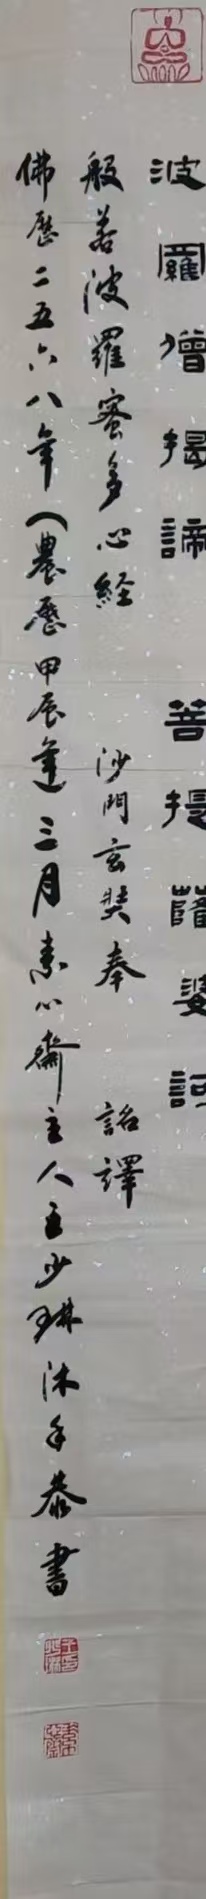 波羅僧揭諦　菩提薩婆訶
般若波羅蜜多心経　沙門玄奘奉　詔譯
佛歷二五六八年（農歷甲辰年）三月素心齋主人王少琳沐手恭書